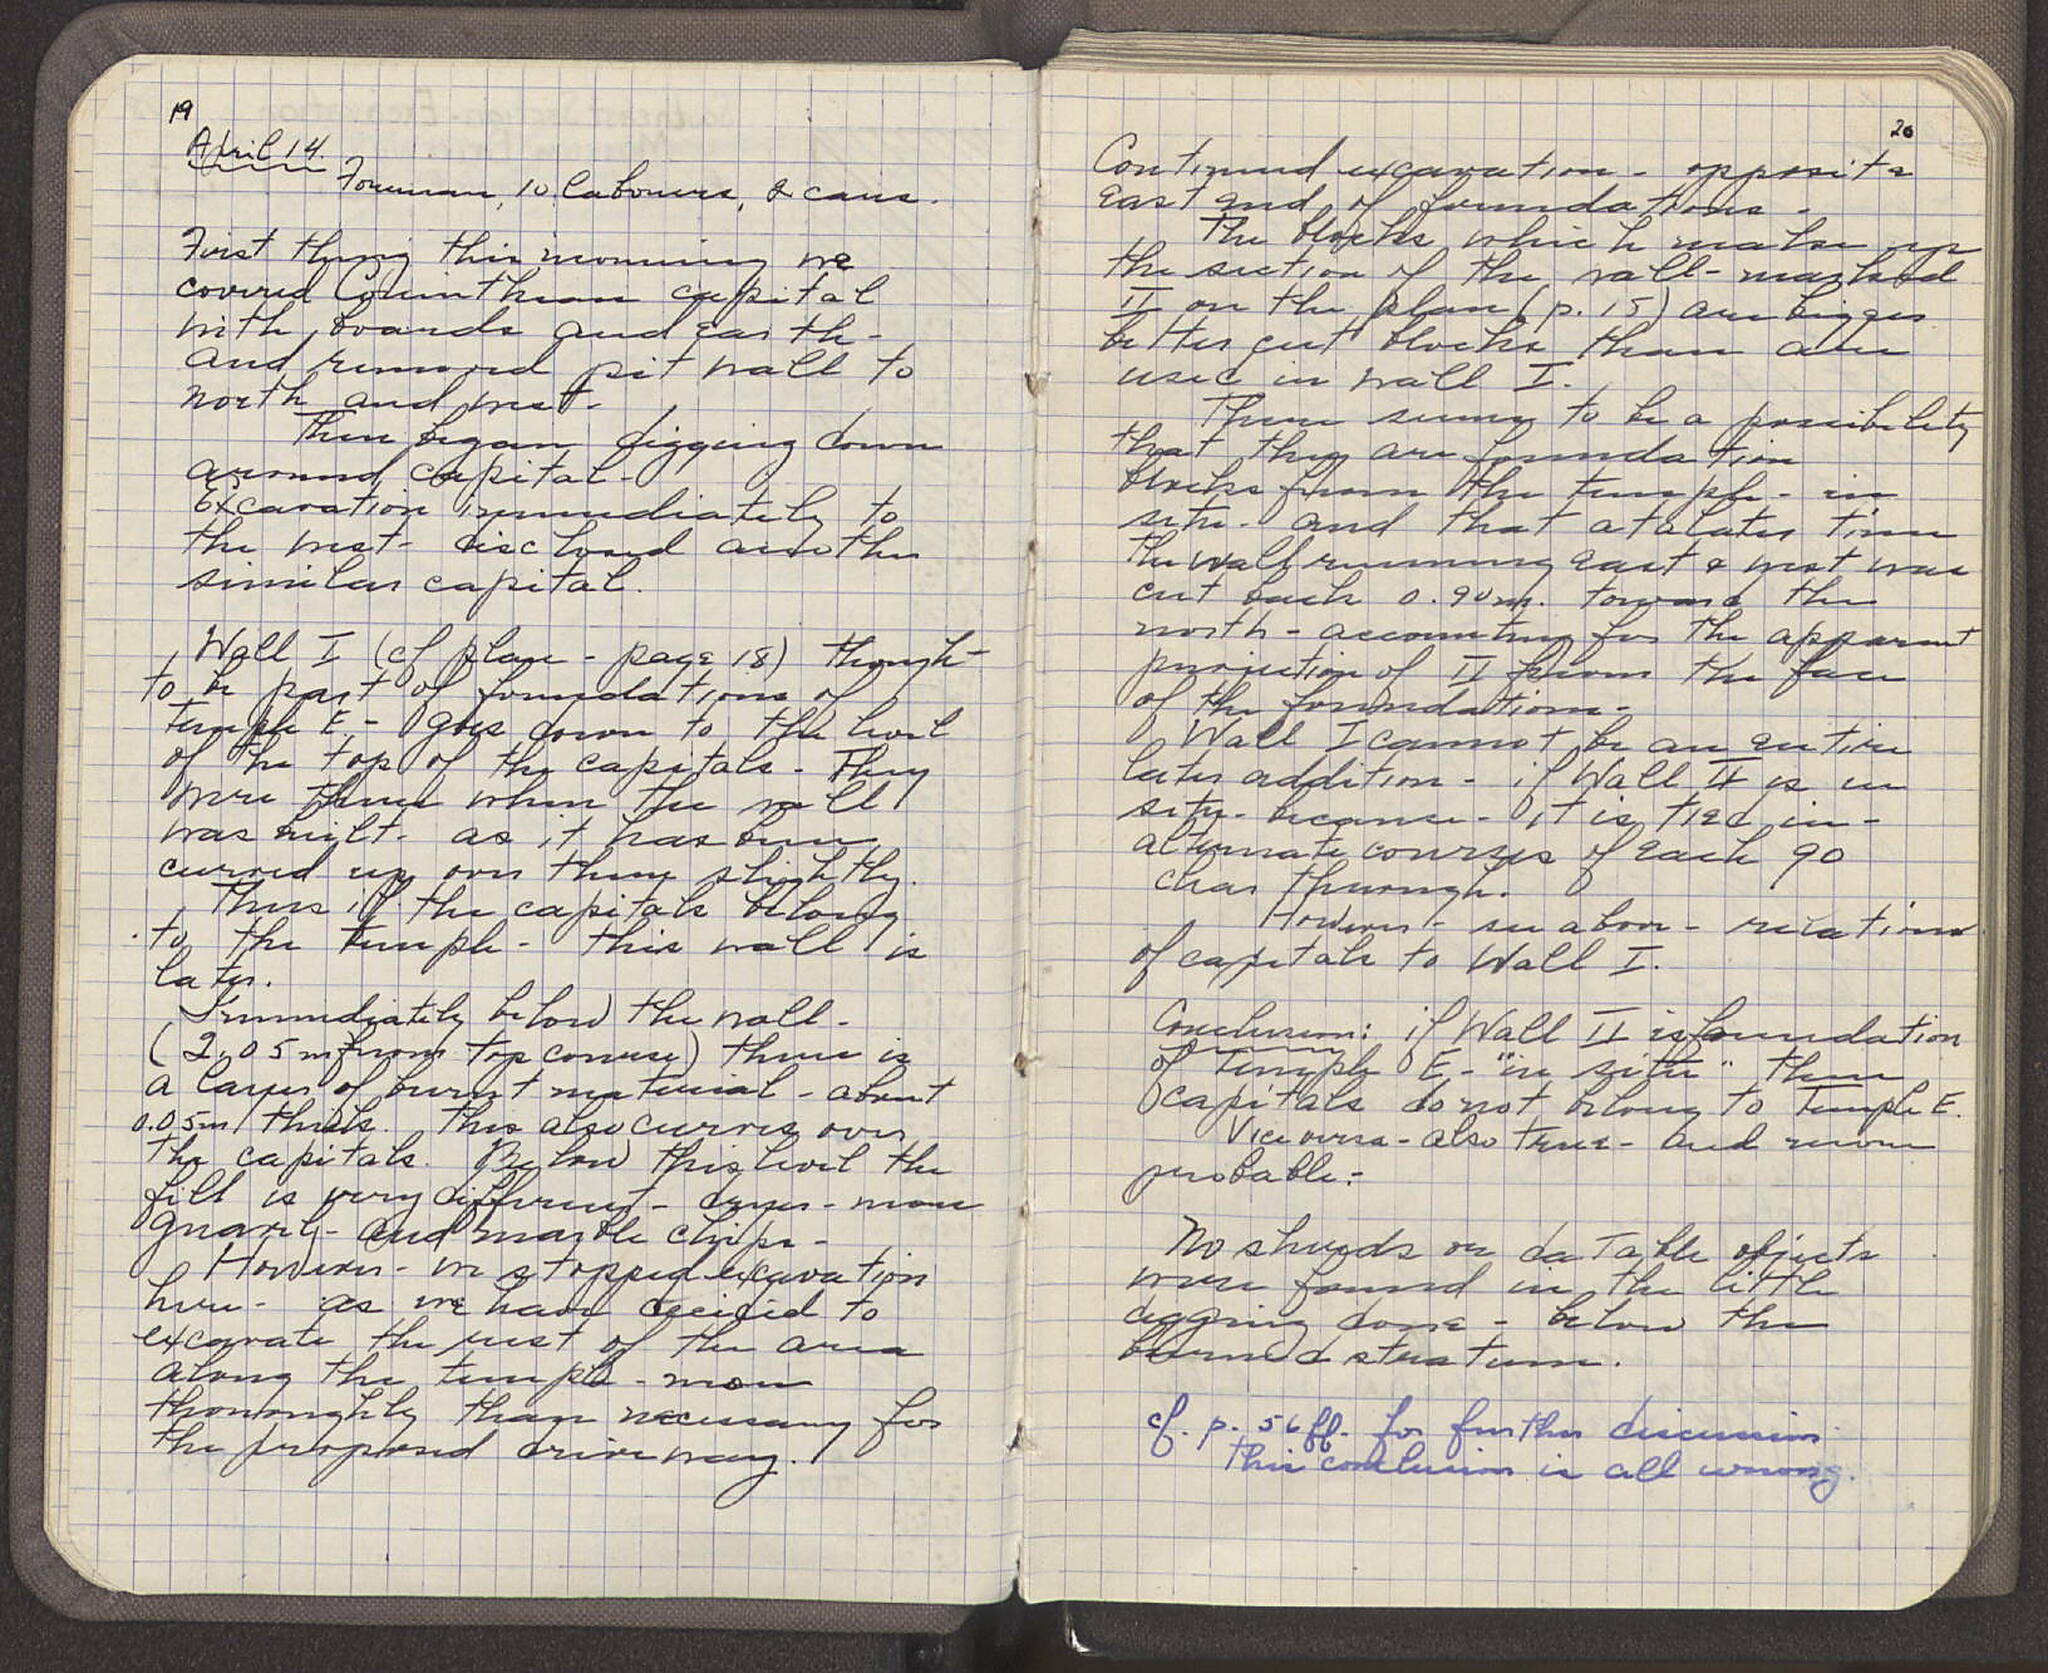 19
April 14.
Foreman, 10 labourers, 2 cars.
First thing this morning we
covered Corinthian capital
with boards and earth -
and removed pit wall to
north and west.
Then began digging down
around capital -
Excavation immediately to
the west - disclosed another
similar capital.
Wall I (cf plan - page 18) thought
to be part of foundations of
Temple E - goes down to the level
of the top of the capitals - They
were there when the wall
was built - as it has been
curved up over them slightly.
Thus if the capitals belong
to the temple - this wall is
later.
Immediately below the wall -
(2.05 m from top course) there is
a layer of burnt material - about
0.05m thick. This also curves over
the capitals. Below this level the
fill is very different - dryer - more
gravely - and marble chips -
However - we stopped excavation
here - as we have decided to
excavate the rest of the area
along the temple - more
thoroughly than necessary for
the proposed driveway.
20
Continued excavation - opposite
east end of foundations -
The blocks which make up
the section of the wall - marked
II on the plan (p. 15) are bigger
better cut blocks than are
used in wall I.
There seems to be a possibility
that they are foundation
blocks from the temple - in
situ - and that at a later time
the wall running east & west was
cut back 0.90m. toward the
north - accounting for the apparent
projection of II from the face
of the foundations -
Wall I cannot be an entire
later addition - if Wall II is in
situ - because - it is tied in -
alternate courses of each go
clear through.
However - see above - relation
of capitals to Wall I.
Conclusion: if Wall II is foundation
of Temple E - "in situ" then
capitals do not belong to Temple E.
Vice versa - also true - and more
probable -
No sherds or datable objects
were found in the little
digging done - below the
burned stratum.
cf. p. 56 ff. for further discussion
This conclusion is all wrong.